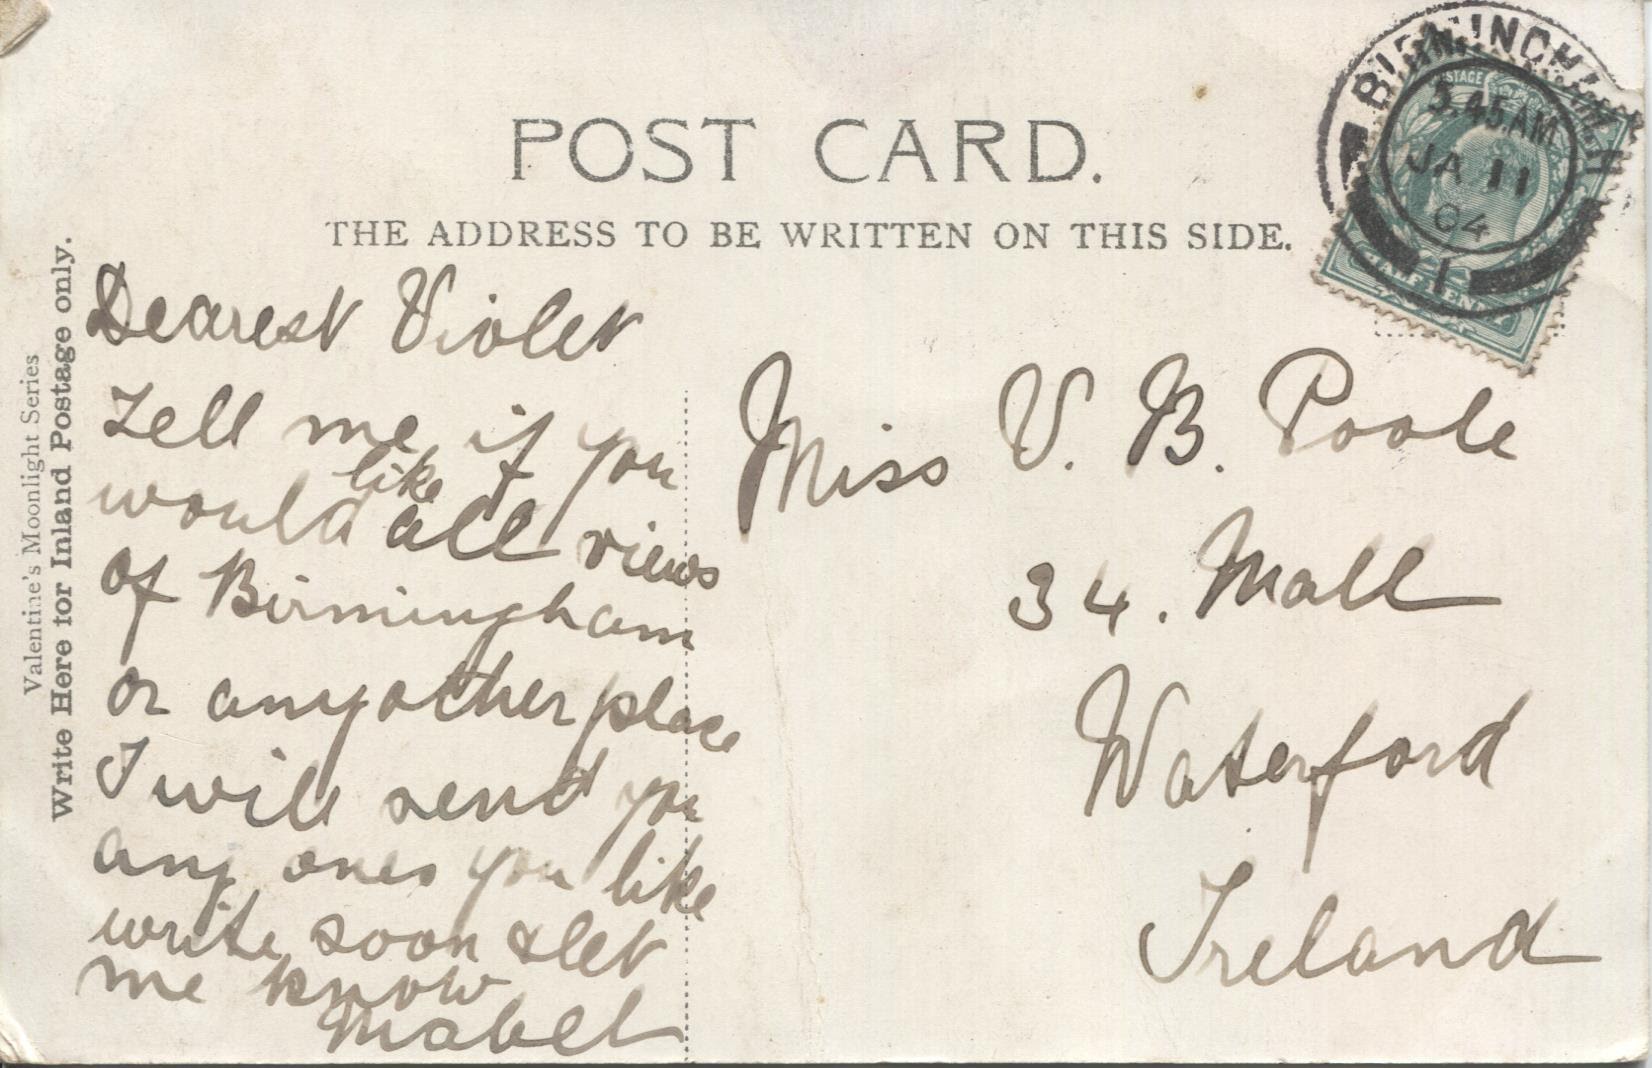 POST CARD.
THE ADDRESS TO BE WRITTEN ON THIS SIDE.
Valentine's Moonlight Series
Write Here for Inland Postage only.
BIRMINGHAM
3.45 AM
JA 11
04
1
POSTAGE
HALFPENNY
Dearest Violet
Tell me if you
would like all views
of Birmingham
or any other place
I will send you
any ones you like
write soon & let
me know
Mabel
Miss V. B. Poole
34. Mall
Waterford
Ireland